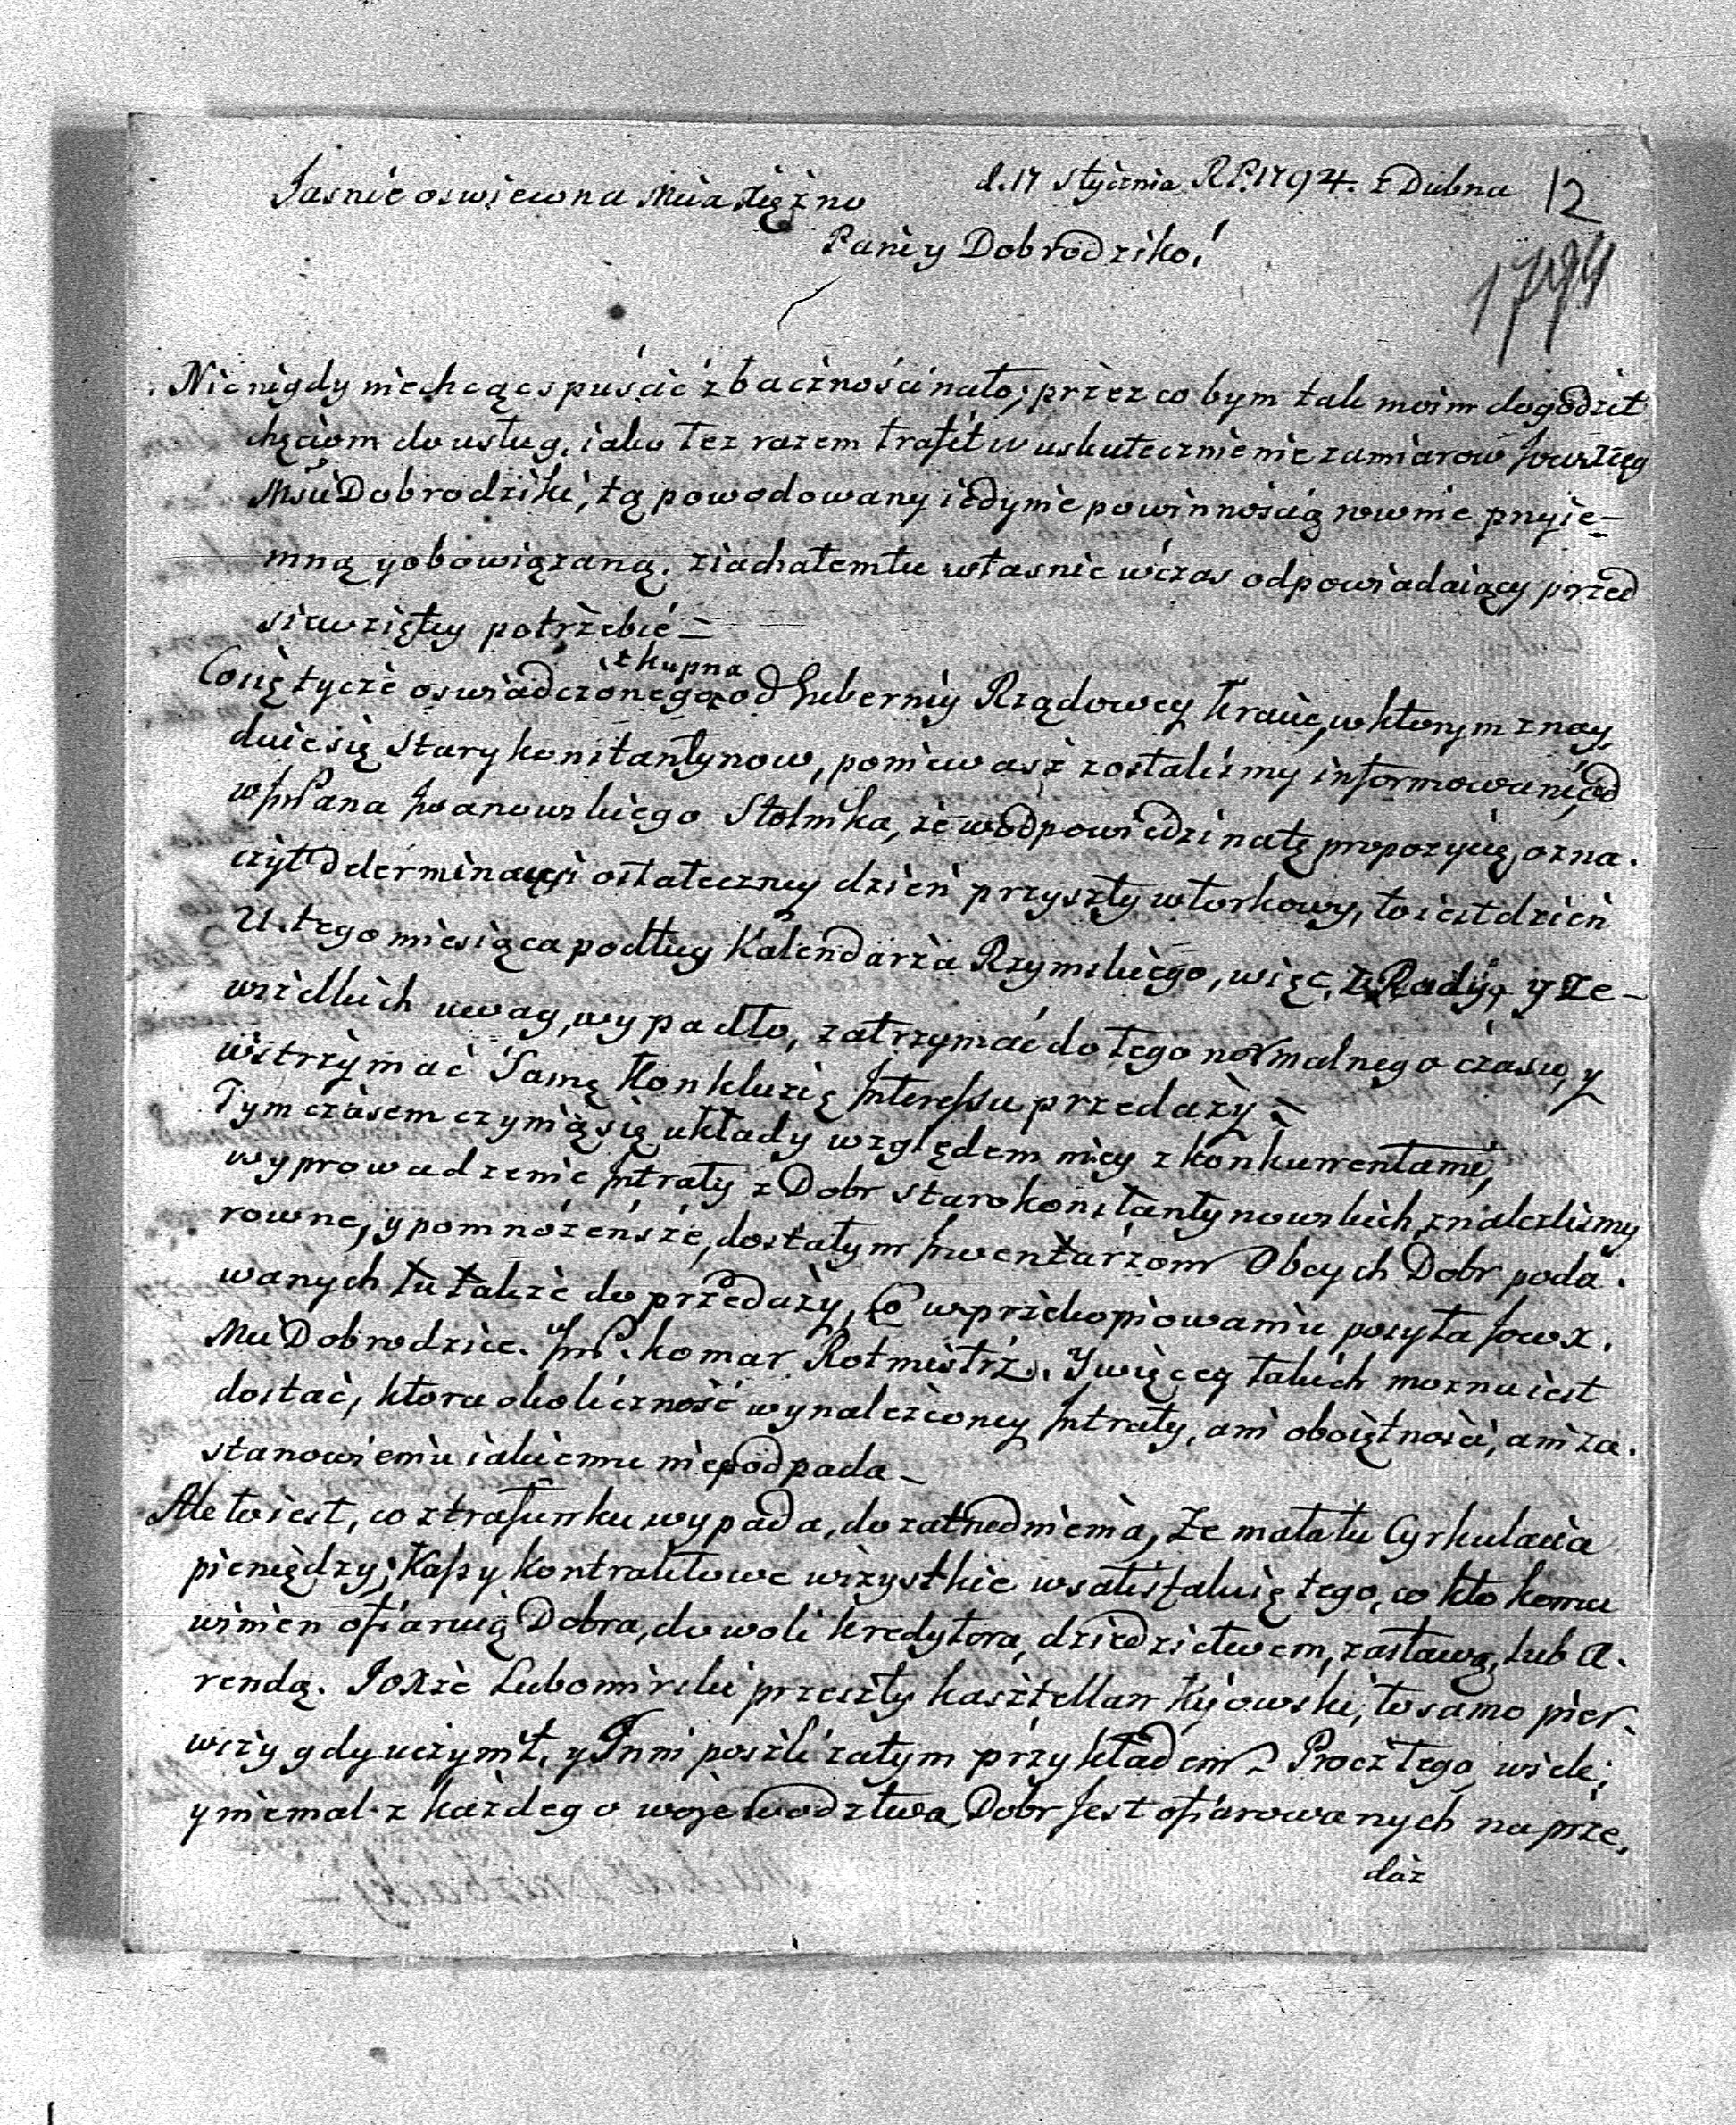 d. 17 Stycznia R.P. 1794. z Dubna 12
Jasnie oswiecona Mcia Xiężno
Pani y Dobrodziko!
1794
Nic nigdy niechcąc spuścić z baczności na to, przez co bym tak moim dogodził
chęciom do usług, iako tez razem trafił w uskutecznienie zamiarow Jowxzey
Mści Dobrodziki, tą powodowany iedynie powinnoscią rownie przyie-
mną y obowiązaną. ziachałem tu własnie wczas odpowiadaiący przed
siewziętey potrzebie –
Co się tycze oswiadczonego zkupna od Guberniy Rządowey kraiu, w ktorym znay
duie się Stary konstantynow, poniewasz zostalismy informowani, od
WJmPana Iwanowskiego Stolnika, ze w odpowiedzi na tę propozycią, ozna.
czył determinacyi ostateczney dzien przyszły wtorkowy, to iest dzien
21. tego miesiąca podług Kalendarza Rzymskiego, więc z Rady, y ze-
wszelkich uwag, wypadło, zatrzymać do tego normalnego czasu, y
wstrzymać samę Konkluzią Interessu przedazy –
Tym czasem czynią się układy względem niey z konkurrentami,
wyprowadzenie Intraty z Dobr starokonstantynowskich, znalezlismy
rowne, y pomnozensze, dostałym Inwentarzom Obcych Dobr poda.
wanych tu takze do przedazy, Co w przekopiowaniu posyła Jowx.
Mci Dobrodzice. WJmP. komar Rotmistrz. Y więcey takich mozna iest
dostać, ktora okoliczność wynalezioney Intraty, ani oboiętności, ani za.
stanowieniu iakiemu niepodpada –
Ale to iest, co z trafunku wypada, do zatrudnienia, ze mała tu Cyrkulacia
pieniędzy; Kassy kontraktowe wszystkie w satisfakcią tego, co kto komu
winien ofiaruią Dobra, do woli kredytora, dziedzictwem, zastawą, lub A.
rendą. JoXże Lubomirski przeszły kasztellan kijowski, to samo pier-
wszy gdy uczynił, y Inni poszli za tym przykładem – Procz tego wiele,
y niemal z kazdego wojewodztwa Dobr Jest ofiarowanych na prze,
daz